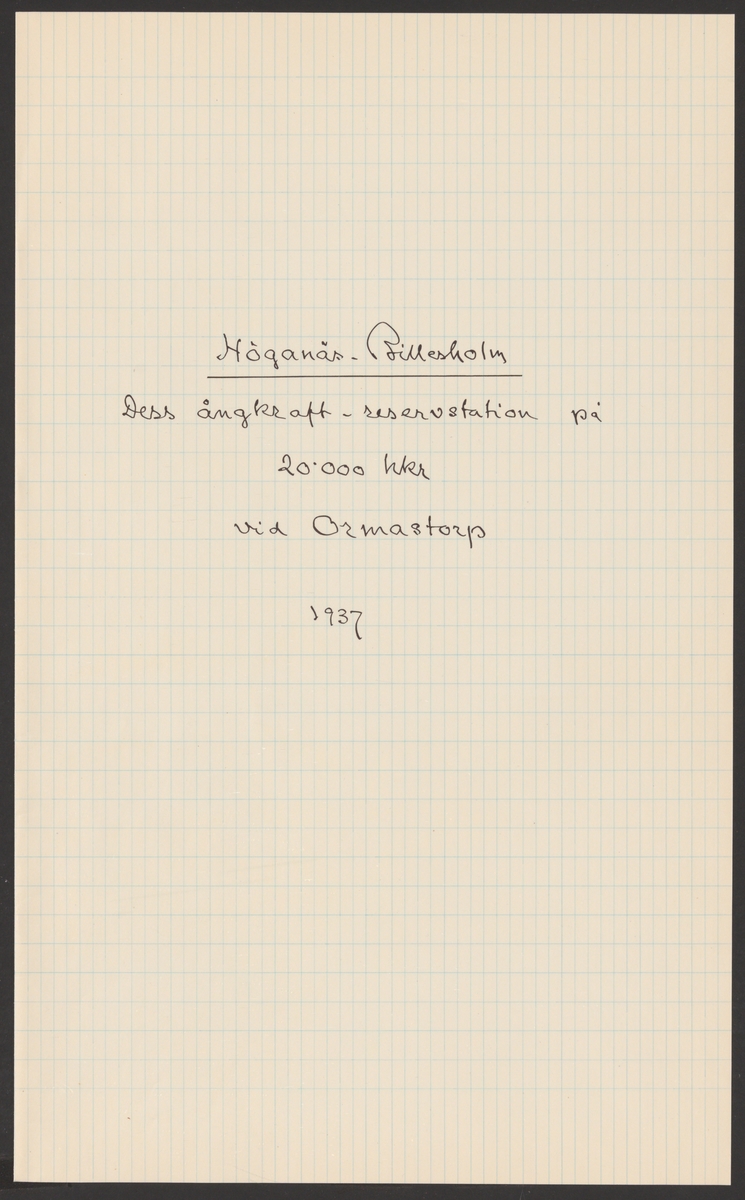 Höganäs - Billesholm
Dess ångkraft - reservstation på
20·000 hkr
vid Ormastorp
1937